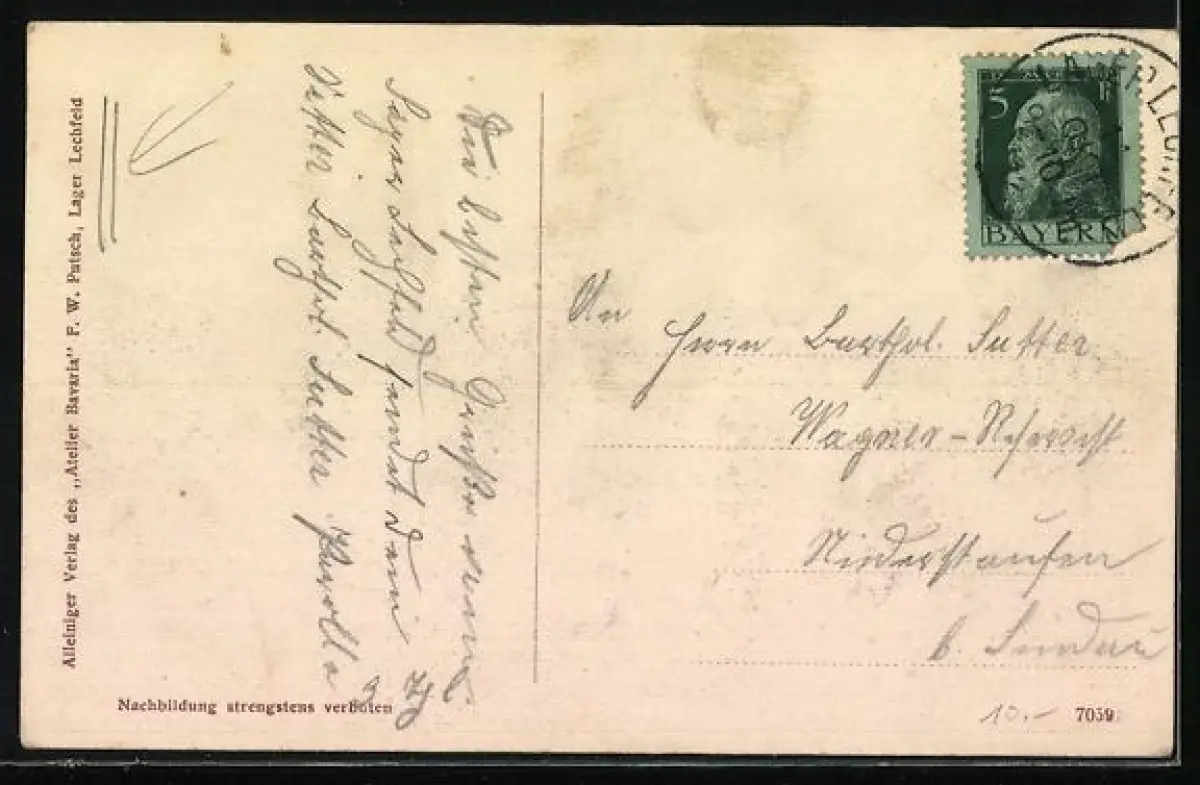 Alleiniger Verlag des „Atelier Bavaria" F. W. Putsch, Lager Lechfeld
Die besten Grüße vom
Lager Lechfeld sendet dein
Vetter Barthol. Sutter
Nachbildung strengstens verboten
5
BAYERN
LAGER LECHFELD
An
Herrn Barthol. Sutter
Wagner-
Niderstaufen
b. Lindau
10.-
7059